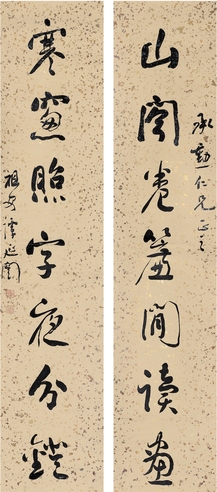 承勳仁兄正之
山閣卷簾閒讀畫
寒窗照字夜分鐙
祖安譚延闓